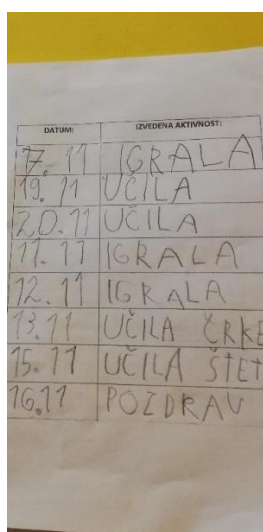 DATUM: IZVEDENA AKTIVNOST:
17. 11 IGRALA
19. 11 UČILA
20. 11 UČILA
11. 11 IGRALA
12. 11 IGRALA
13.11 UČILA ČRKE
15. 11 UČILA ŠTET
16.11 POZDRAV